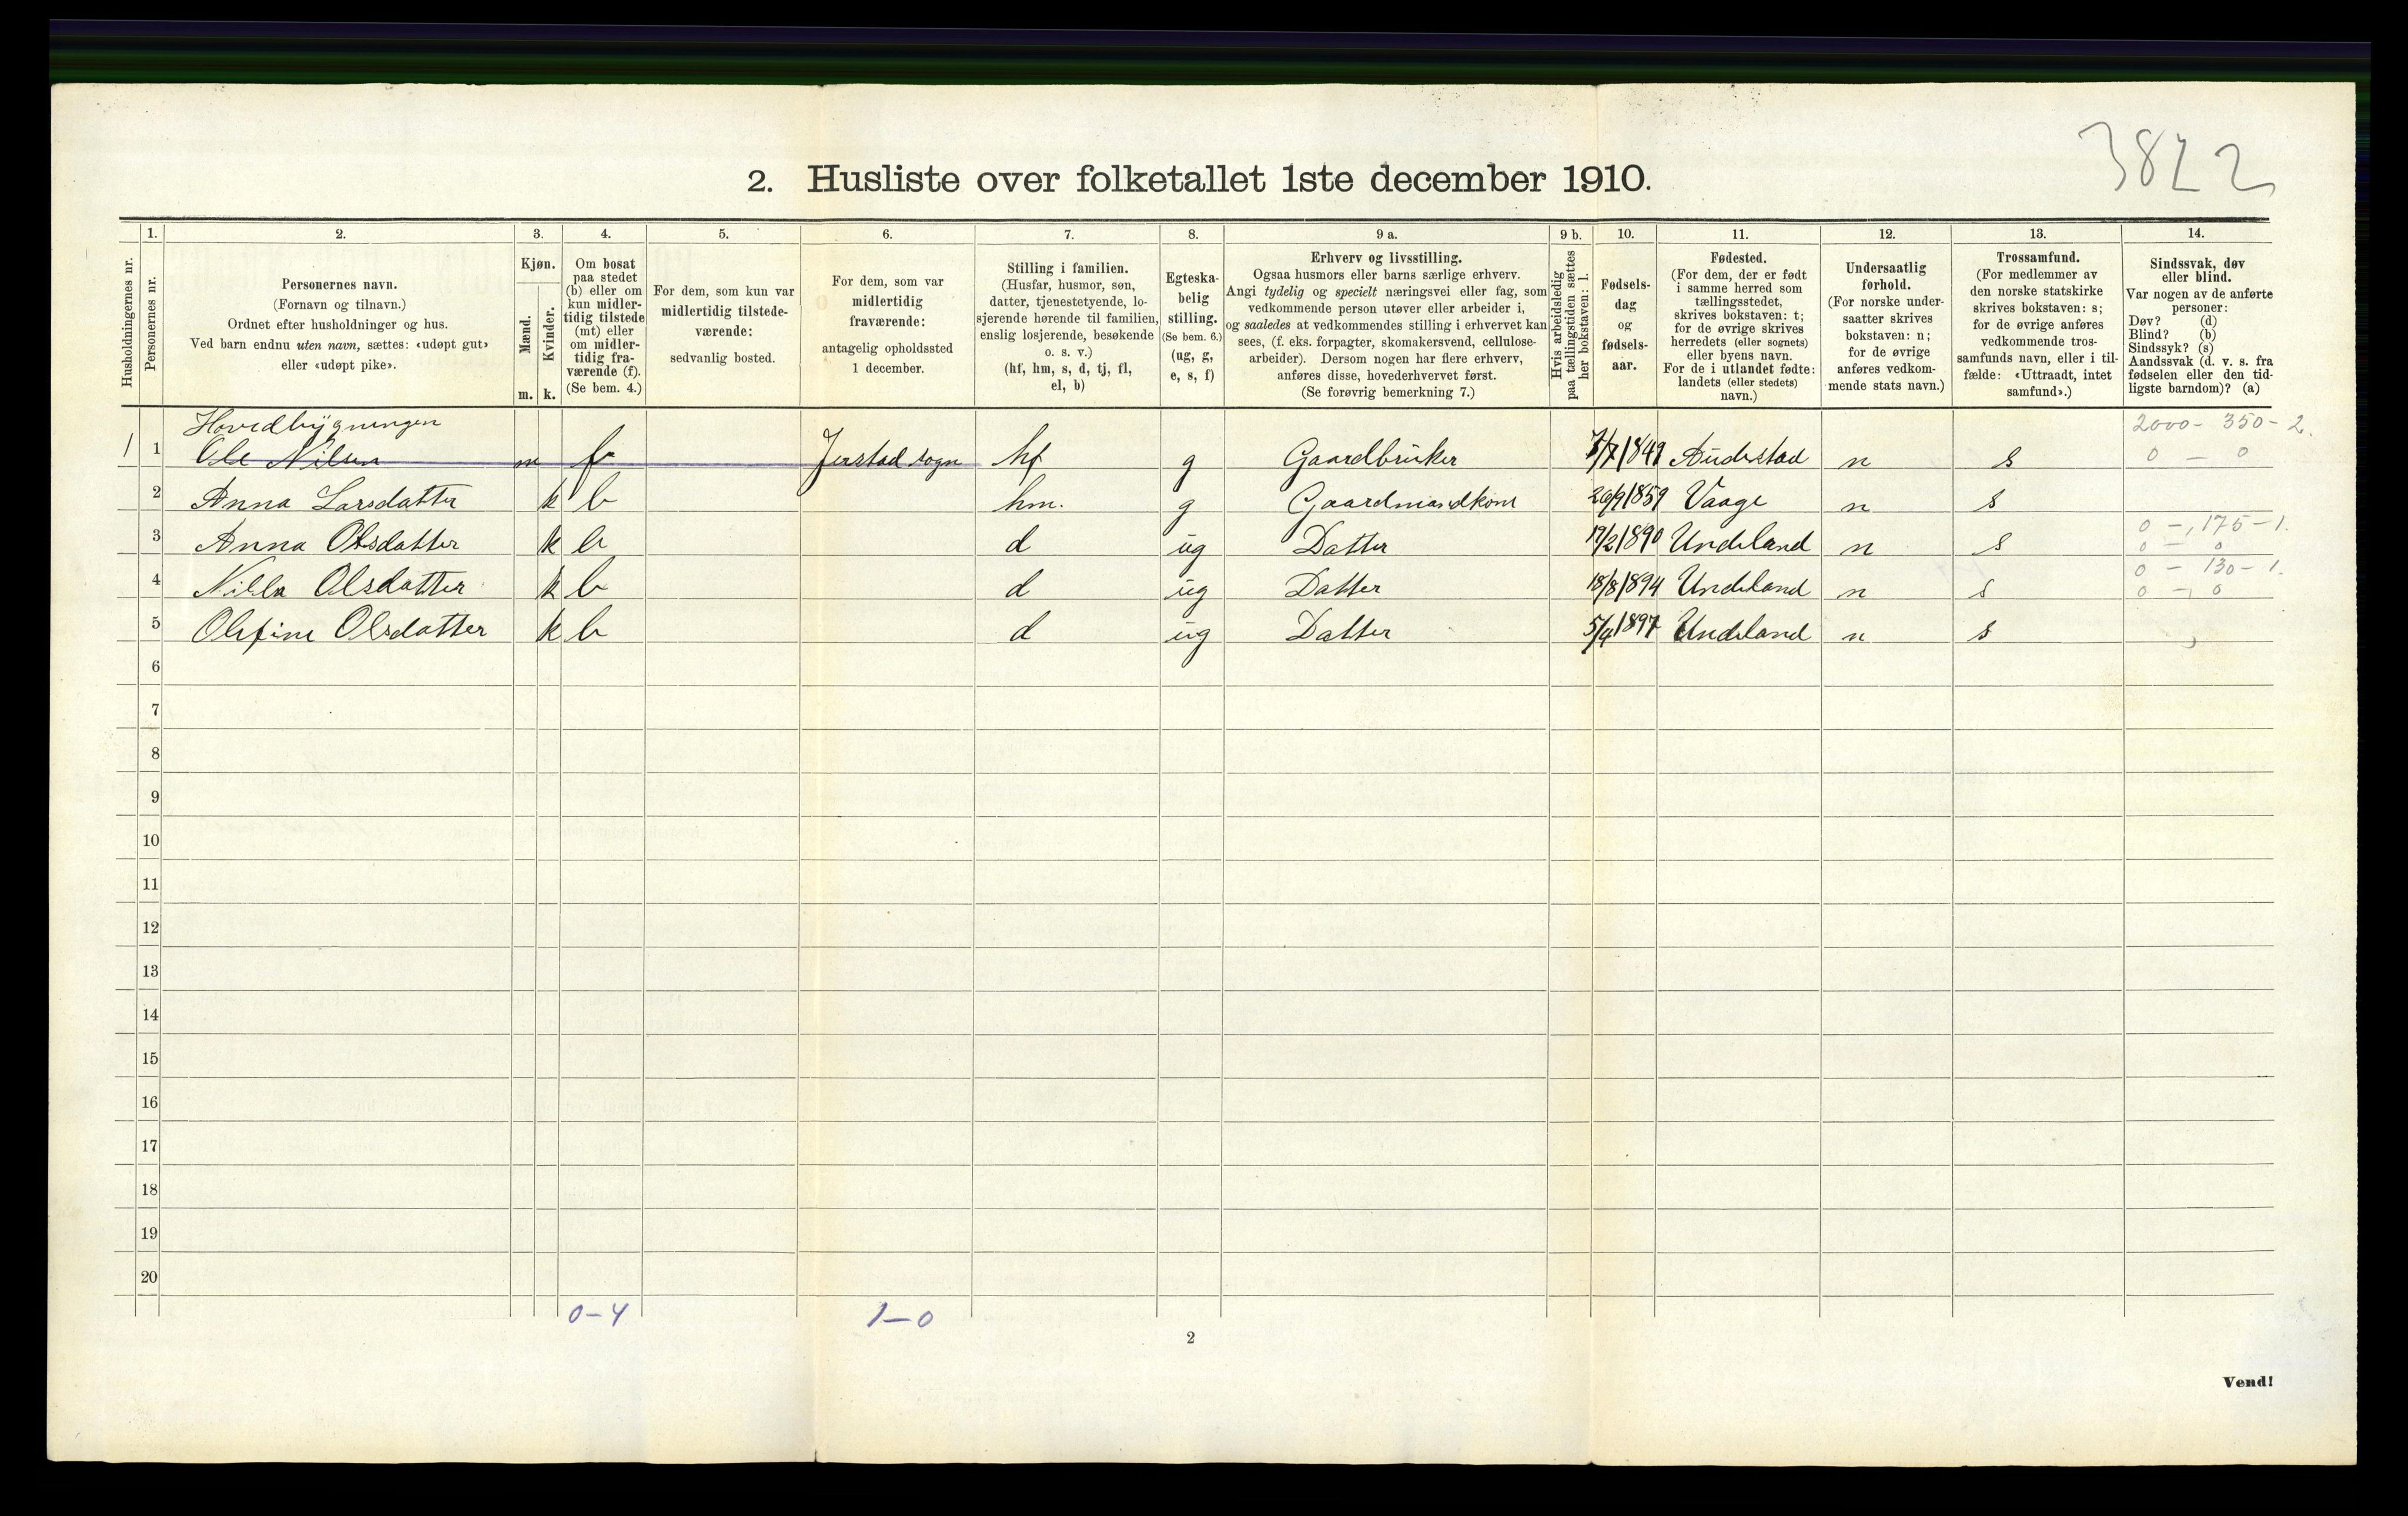 3822
2. Husliste over folketallet 1ste december 1910.
Husholdningernes nr.
1.
Personernes nr.
2.
Personernes navn.
(Fornavn og tilnavn.)
Ordnet efter husholdninger og hus.
Ved barn endnu uten navn, sættes: «udøpt gut»
eller «udøpt pike».
3.
Kjøn.
Mænd.
Kvinder.
m. k.
4.
Om bosat
paa stedet
(b) eller om
kun midler-
tidig tilstede
(mt) eller
om midler-
tidig fra-
værende (f).
(Se bem. 4.)
5.
For dem, som kun var
midlertidig tilstede-
værende:
sedvanlig bosted.
6.
For dem, som var
midlertidig
fraværende:
antagelig opholdssted
1 december.
7.
Stilling i familien.
(Husfar, husmor, søn,
datter, tjenestetyende, lo-
sjerende hørende til familien,
enslig losjerende, besøkende
o. s. v.)
(hf, hm, s, d, tj, fl,
el, b)
8.
Egteska-
belig
stilling.
(Se bem. 6.)
(ug, g,
e, s, f)
9 a.
Erhverv og livsstilling.
Ogsaa husmors eller barns særlige erhverv.
Angi tydelig og specielt næringsvei eller fag, som
vedkommende person utøver eller arbeider i,
og saaledes at vedkommendes stilling i erhvervet kan
sees, (f. eks. forpagter, skomakersvend, cellulose-
arbeider). Dersom nogen har flere erhverv,
anføres disse, hovederhvervet først.
(Se forøvrig bemerkning 7.)
9 b.
Hvis arbeidsledig
paa tællingstiden sættes
her bokstaven: l.
10.
Fødsels-
dag
og
fødsels-
aar.
11.
Fødested.
(For dem, der er født
i samme herred som
tællingsstedet,
skrives bokstaven: t;
for de øvrige skrives
herredets (eller sognets)
eller byens navn.
For de i utlandet fødte:
landets (eller stedets)
navn.)
12.
Undersaatlig
forhold.
(For norske under-
saatter skrives
bokstaven: n;
for de øvrige
anføres vedkom-
mende stats navn.)
13.
Trossamfund.
(For medlemmer av
den norske statskirke
skrives bokstaven: s;
for de øvrige anføres
vedkommende tros-
samfunds navn, eller i til-
fælde: «Uttraadt, intet
samfund».)
14.
Sindssvak, døv
eller blind.
Var nogen av de anførte
personer:
Døv? (d)
Blind? (b)
Sindssyk? (s)
Aandssvak (d. v. s. fra
fødselen eller den tid-
ligste barndom)? (a)
Hovedbygningen 2000 - 350 - 2.
1 1 Ole Nilsen m f Jerstad sogn hf g Gaardbruker 1849 Audestad n s 0 - 0
2 Anna Larsdatter k b hm. g Gaardmandkone 26/9 1859 Vaage n s
0 -, 175 - 1.
3 Anna Olsdatter k b d ug Datter 19/2 1890 Undeland n s 0 - 0
0 - 130 - 1.
4 Nilla Olsdatter k b d ug Datter 18/8 1894 Undeland n s 0 -, 0
5 Olefine Olsdatter k b d ug Datter 5/4 1897 Undeland n s
6
7
8
9
10
11
12
13
14
15
16
17
18
19
20
0-4 1-0
2
Vend!